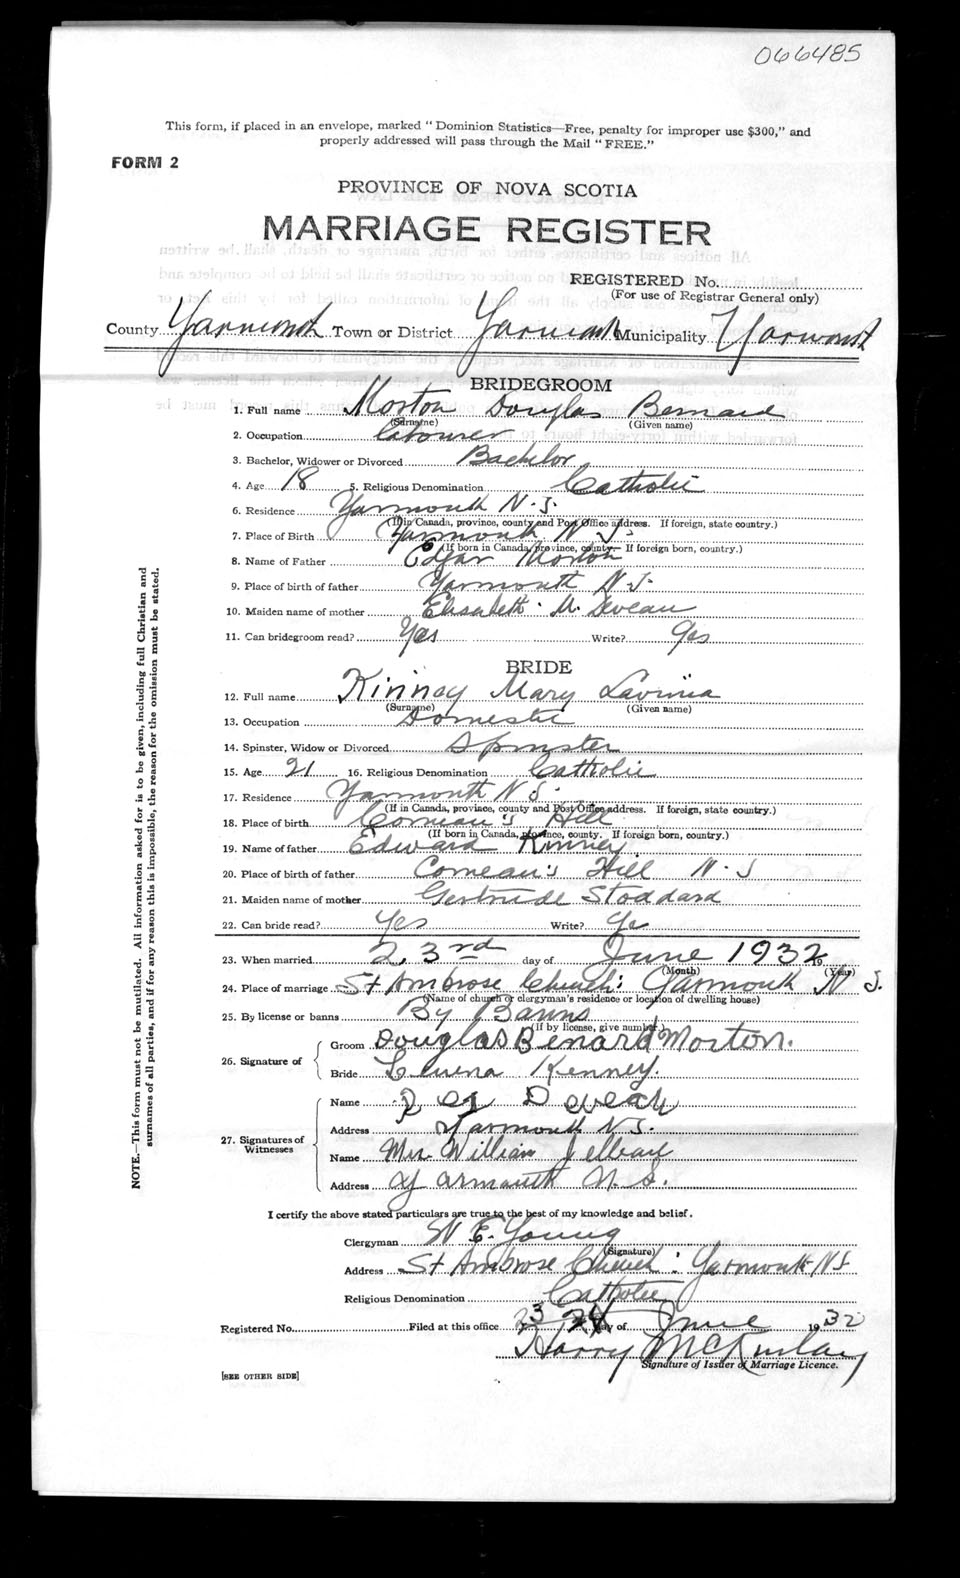 066485
This form, if placed in an envelope, marked "Dominion Statistics—Free, penalty for improper use $300," and
properly addressed will pass through the Mail "FREE."
FORM 2
PROVINCE OF NOVA SCOTIA
MARRIAGE REGISTER
REGISTERED No.
(For use of Registrar General only)
County Yarmouth Town or District Yarmouth Municipality Yarmouth
BRIDEGROOM
1. Full name Morton Douglas Bernard
(Surname) (Given name)
2. Occupation Labourer
3. Bachelor, Widower or Divorced Bachelor
4. Age 18 5. Religious Denomination Catholic
6. Residence Yarmouth N.S.
(If in Canada, province, county and Post Office address. If foreign, state country.)
7. Place of Birth Yarmouth N S
(If born in Canada, province, county. If foreign born, country.)
8. Name of Father Edgar Morton
9. Place of birth of father Yarmouth N.S.
10. Maiden name of mother Elisabeth M. Deveau
11. Can bridegroom read? Yes Write? Yes
BRIDE
12. Full name Kinney Mary Lavinia
(Surname) (Given name)
13. Occupation Domestic
14. Spinster, Widow or Divorced Spinster
15. Age 21 16. Religious Denomination Catholic
17. Residence Yarmouth N S.
(If in Canada, province, county and Post Office address. If foreign, state country.)
18. Place of birth Comeau's Hill
(If born in Canada, province, county. If foreign born, country.)
19. Name of father Edward Kinney
20. Place of birth of father Comeau's Hill N.S
21. Maiden name of mother Gertrude Stoddard
22. Can bride read? Yes Write? Yes
23. When married 23rd day of June 1932 19
(Month) (Year)
24. Place of marriage St Ambrose Church: Yarmouth N S.
(Name of church or clergyman's residence or location of dwelling house)
25. By license or banns By Banns
(If by license, give number)
26. Signature of
Groom Douglas Benard Morton.
Bride Kenney.
27. Signatures of Witnesses
Name Deveau
Address Yarmouth N.S.
Name Mrs. William
Address Yarmouth N.S.
I certify the above stated particulars are true to the best of my knowledge and belief.
Clergyman W E. Young
(Signature)
Address St Ambrose Church: Yarmouth NS
Religious Denomination Catholic
Registered No. Filed at this office 23 24 day of June 1932
Harry McKinlay
Signature of Issuer of Marriage Licence.
[SEE OTHER SIDE]
NOTE.—This form must not be mutilated. All information asked for is to be given, including full Christian and
surnames of all parties, and if for any reason this is impossible, the reason for the omission must be stated.